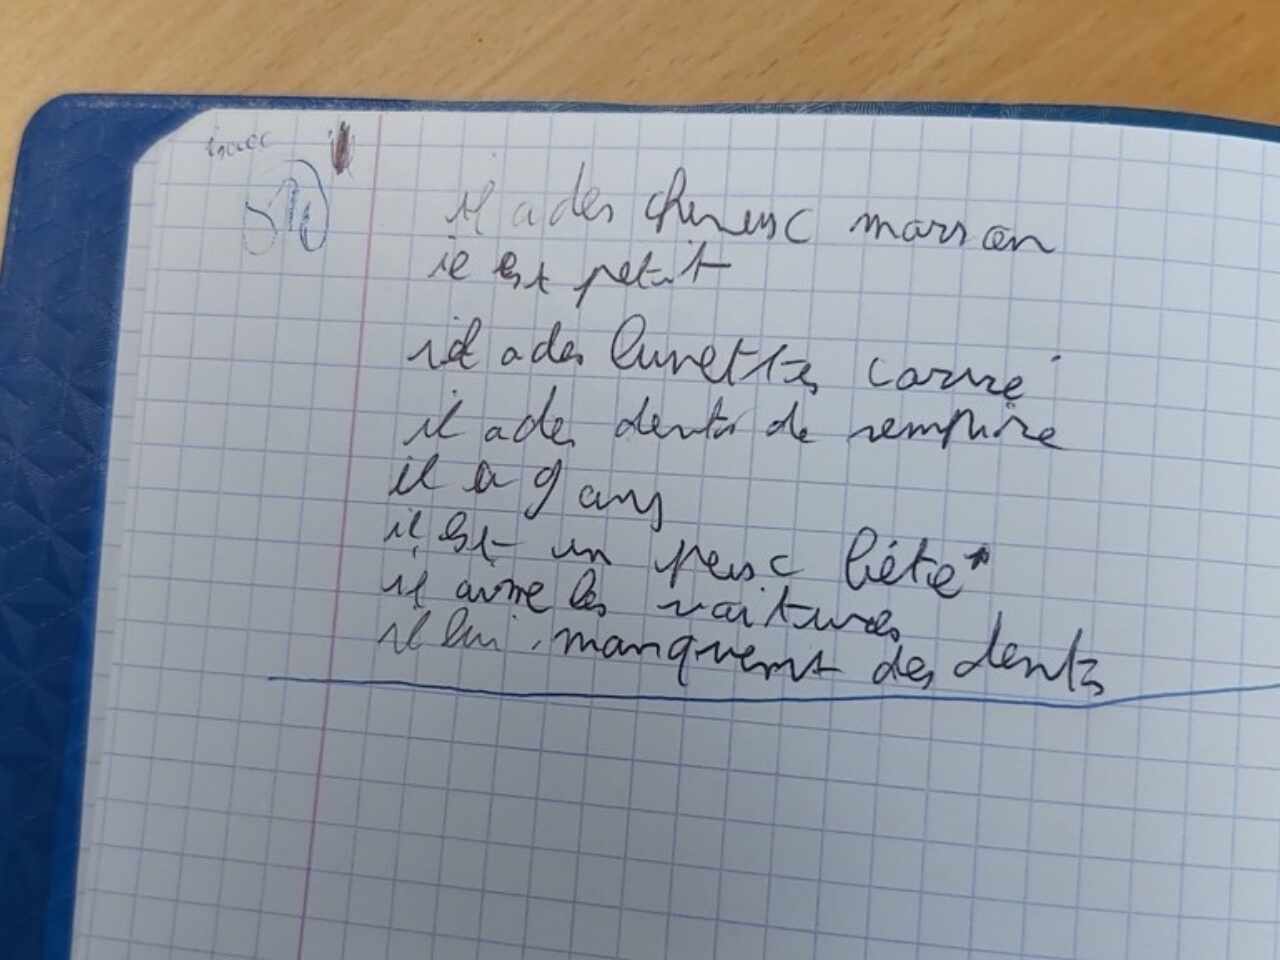 il a des cheveux marron
il est petit
il a des lunettes carré
il a des dents de vempire
il a 9 ans
il est un peux bête
il aime les voitures
il lui manquent des dents